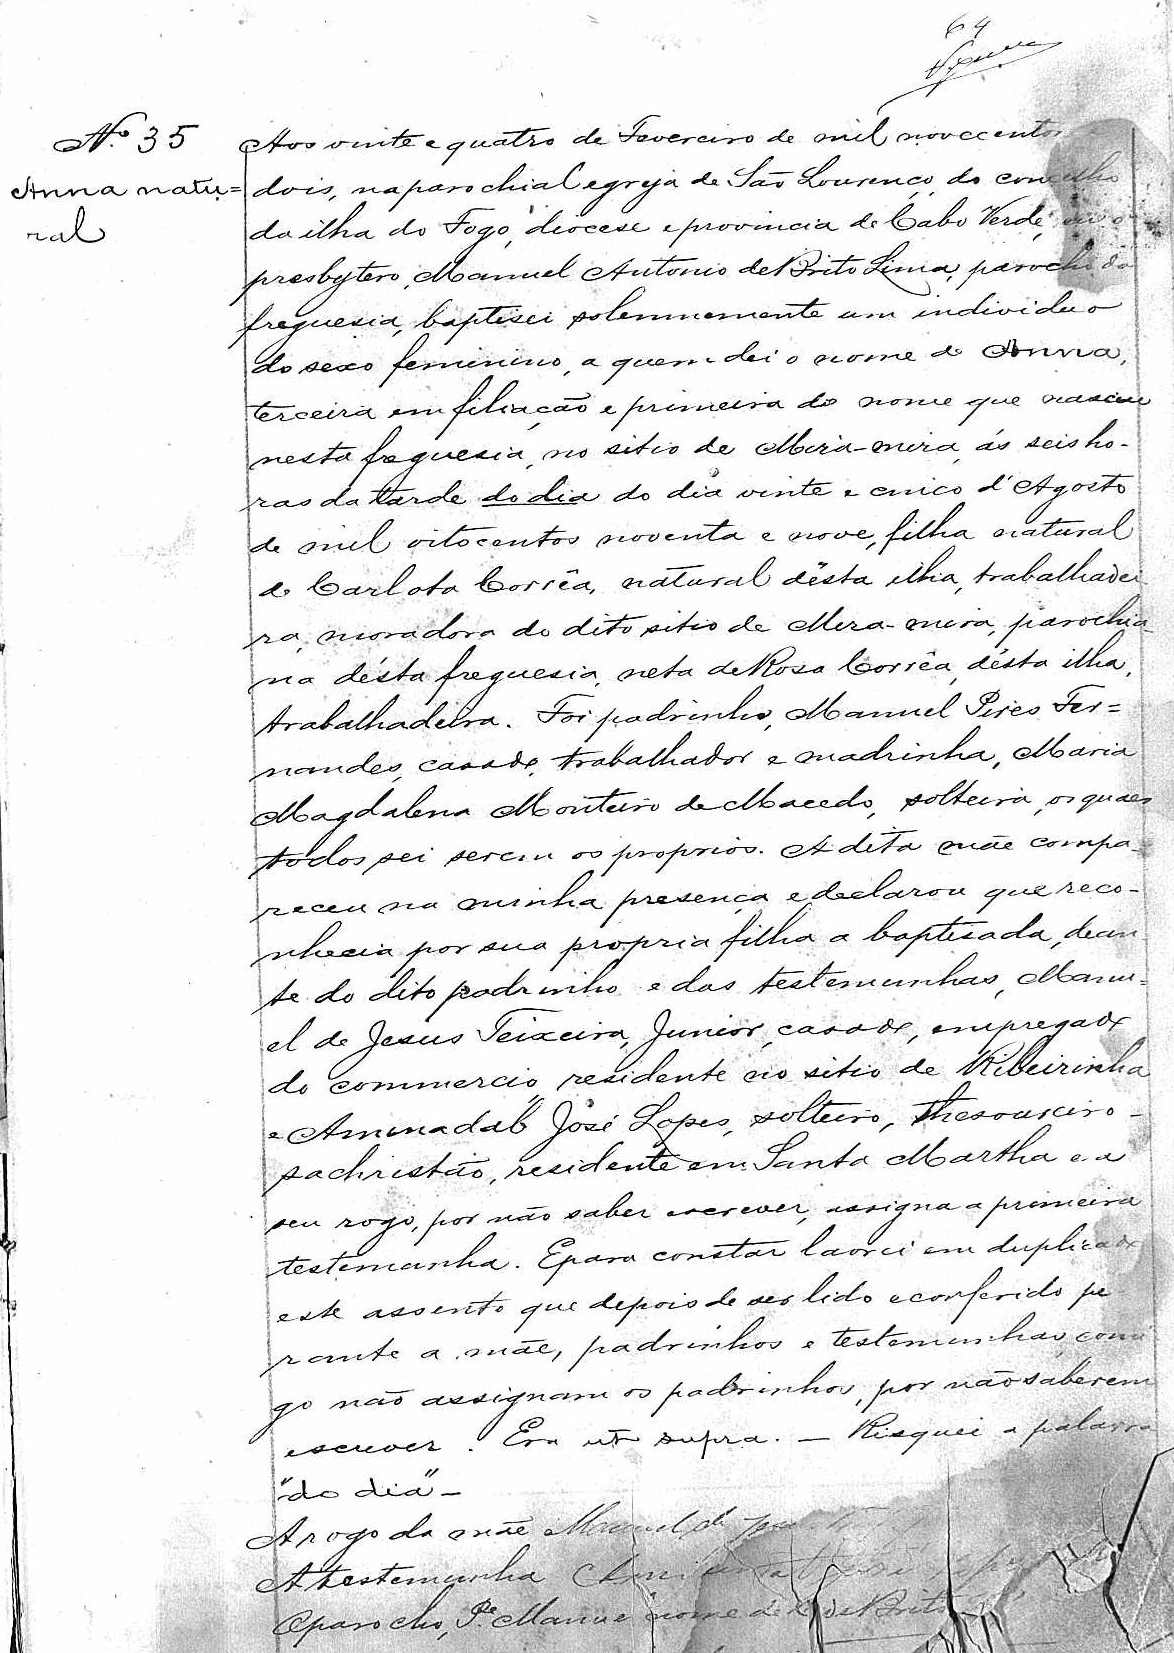 64
Nº 35
Anna natu=
ral
Aos vinte e quatro de Fevereiro de mil novecentos
dois, na parochial egreja de São Lourenço, do concelho
da ilha do Fogo, diocese e provincia de Cabo Verde, eu o
presbytero, Manuel Antonio de Brito Lima, parocho da
freguesia, baptisei solemnemente um individuo
do sexo feminino, a quem dei o nome de Anna,
terceira em filiação e primeira do nome que nasceu
nesta freguesia, no sitio de Mira-mira, ás seis ho-
ras da tarde do dia do dia vinte e cinco d'Agosto
de mil oitocentos noventa e nove, filha natural
de Carlota Corrêa, natural désta ilha, trabalhadei
ra, moradora do dito sitio de Mira-mira, parochia
na désta freguesia, neta de Rosa Corrêa, désta ilha,
trabalhadeira. Foi padrinho, Manuel Pires Fer=
nandes, casado, trabalhador e madrinha, Maria
Magdalena Monteiro de Macedo, solteira, os quaes
todos sei serem os proprios. A dita mãe compa-
receu na minha presença e declarou que reco-
nhecia por sua propria filha a baptisada, dean
te do dito padrinho e das testemunhas, Manu=
el de Jesus Teixeira, Junior, casado, empregado
do commercio, residente no sitio de Ribeirinha
e Aminadab José Lopes, solteiro, thesoureiro-
sachristão, residente em Santa Martha e a
seu rogo, por não saber escrever, assigna a primeira
testemunha. E para constar lavrei em duplicado
este assento que depois de ser lido e conferido pe
rante a mãe, padrinhos e testemunhas, comi
go não assignam os padrinhos, por não saberem
escrever. Era ut supra. — Risquei a palavra
"do dia" —
A rogo da mãe Manuel de
A testemunha
O parocho, Pe. Manuel de Brito